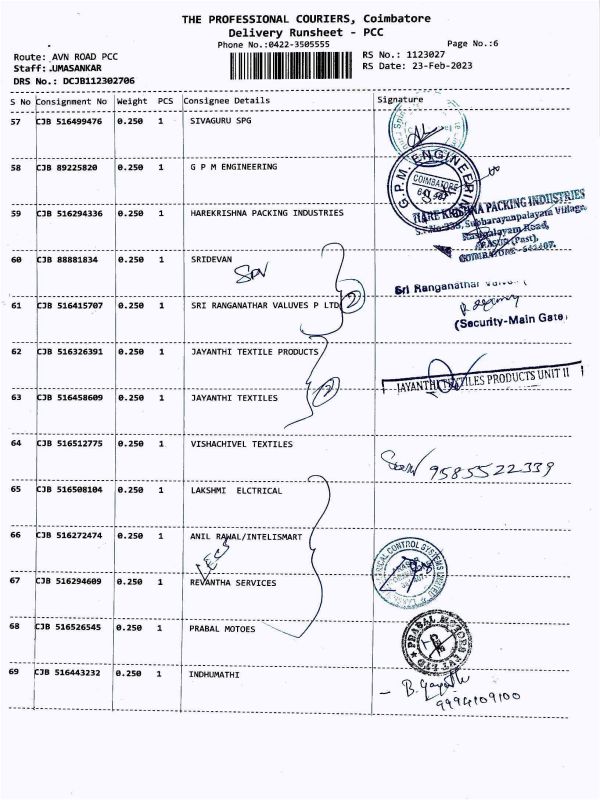 THE PROFESSIONAL COURIERS, Coimbatore
Delivery Runsheet - PCC
Phone No.:0422-3505555 Page No.:6
Route: AVN ROAD PCC RS No.: 1123027
Staff:.UMASANKAR RS Date: 23-Feb-2023
DRS No.: DCJB112302706
S No Consignment No Weight PCS Consignee Details Signature
57 CJB 516499476 0.250 1 SIVAGURU SPG
58 CJB 89225820 0.250 1 G P M ENGINEERING
G.P.M. ENGINEERING
COIMBATORE
59 CJB 516294336 0.250 1 HAREKRISHNA PACKING INDUSTRIES
HARE KRISHNA PACKING INDUSTRIES
Subbarayanpalayam Village
Rasipalayam Road,
ARASUR (Post),
COIMBATORE - 641407.
60 CJB 88881834 0.250 1 SRIDEVAN
Sri Ranganathar
61 CJB 516415707 0.250 1 SRI RANGANATHAR VALUVES P LTD 2
(Security-Main Gate)
62 CJB 516326391 0.250 1 JAYANTHI TEXTILE PRODUCTS
JAYANTHI TEXTILES PRODUCTS UNIT II
63 CJB 516458609 0.250 1 JAYANTHI TEXTILES 2
64 CJB 516512775 0.250 1 VISHACHIVEL TEXTILES
9585522339
65 CJB 516508104 0.250 1 LAKSHMI ELCTRICAL
66 CJB 516272474 0.250 1 ANIL RAWAL/INTELISMART
LECS
CONTROL SYSTEMS
67 CJB 516294609 0.250 1 REVANTHA SERVICES
68 CJB 516526545 0.250 1 PRABAL MOTOES
PRABAL MOTORS PVT LTD
69 CJB 516443232 0.250 1 INDHUMATHI
B. Gayathri
9994109100